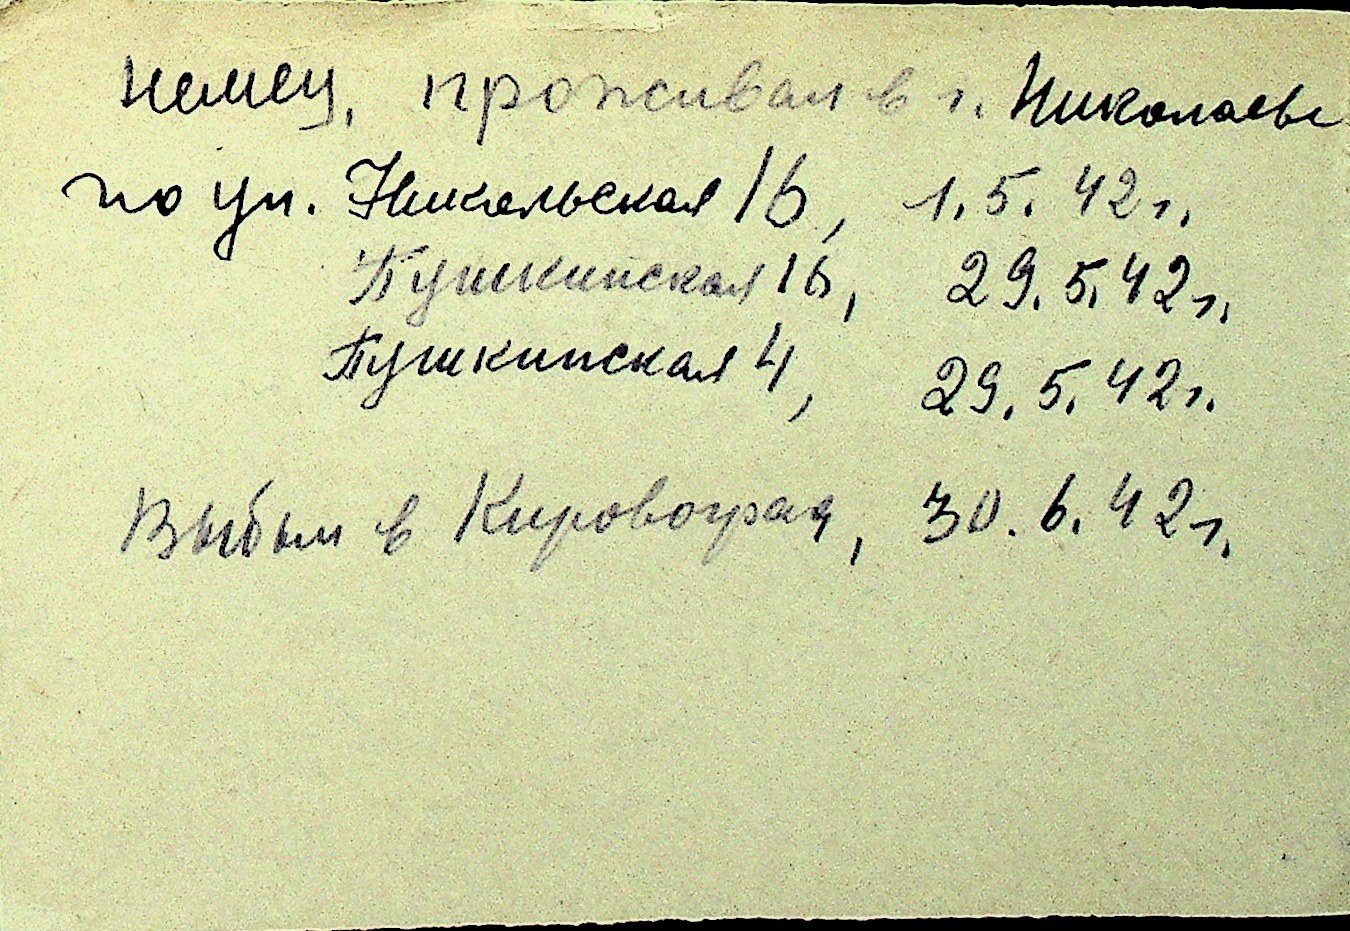 немец, проживал в г. Николаеве
по ул. Никольская 16, 1.5.42 г.
Пушкинская 16, 29.5.42 г.
Пушкинская 4, 29.5.42 г.
Выбыл в Кировоград, 30.6.42 г.